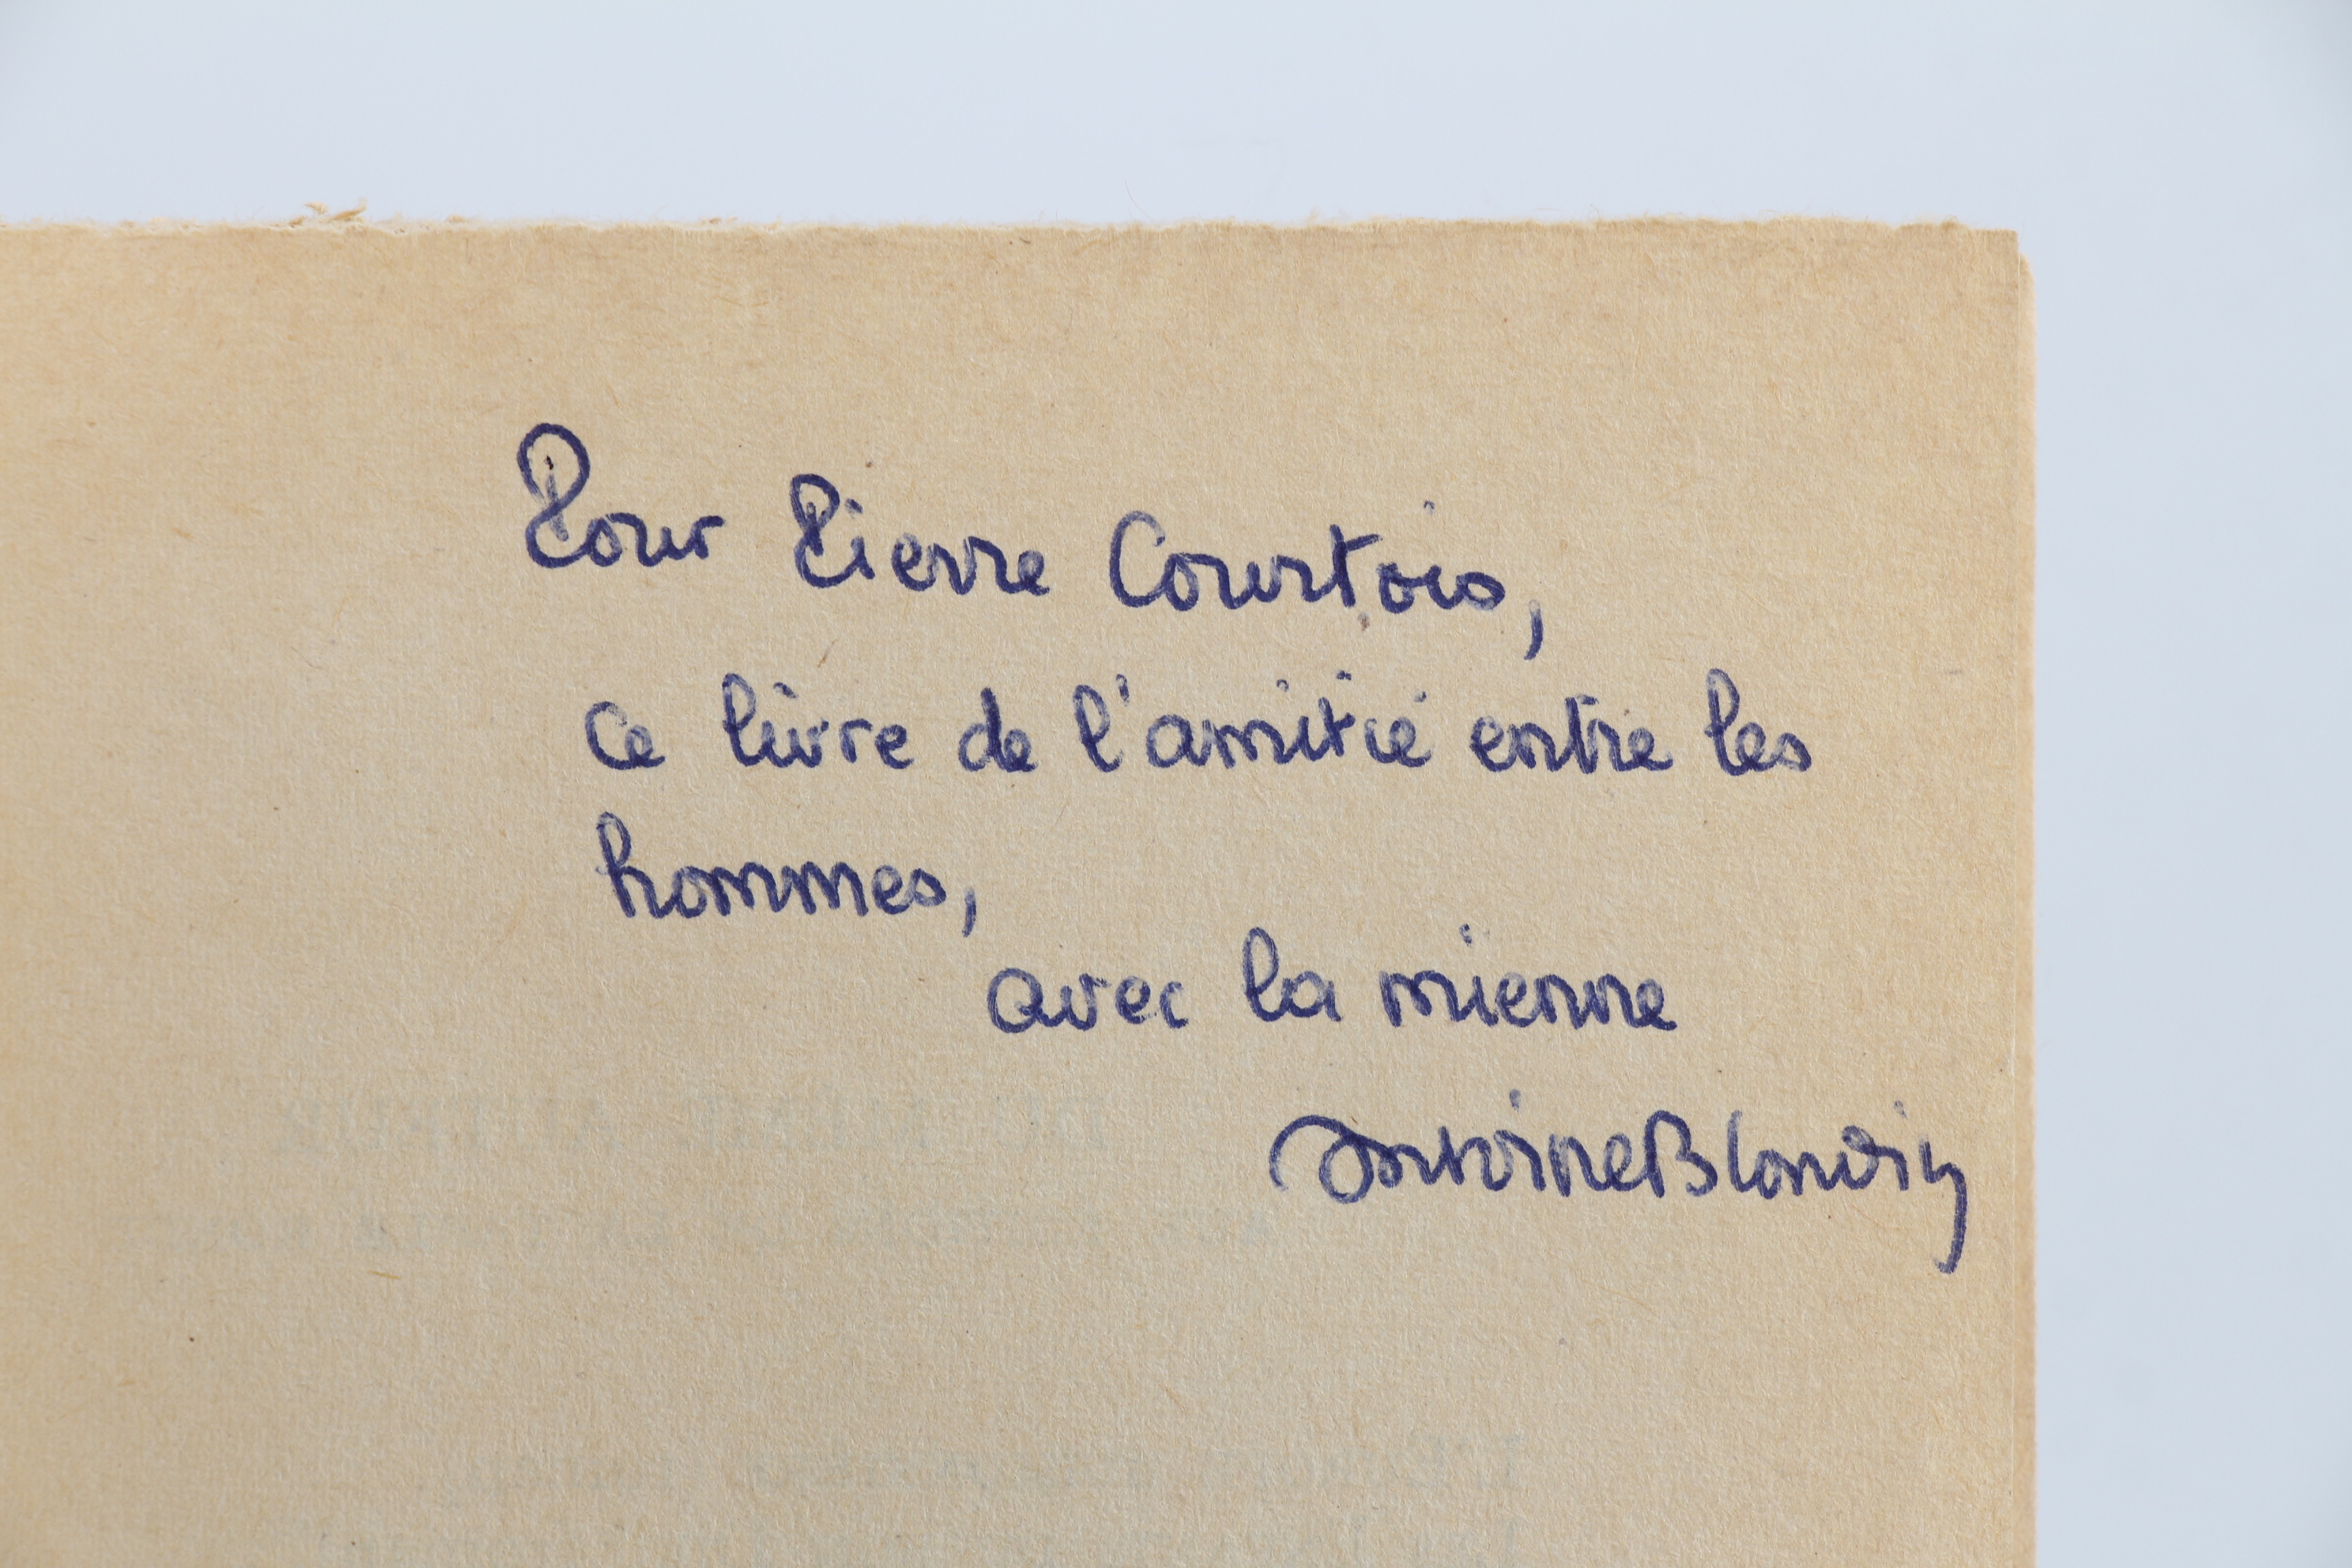 Pour Pierre Courtois,
ce livre de l'amitié entre les
hommes,
avec la mienne
Antoine Blondin